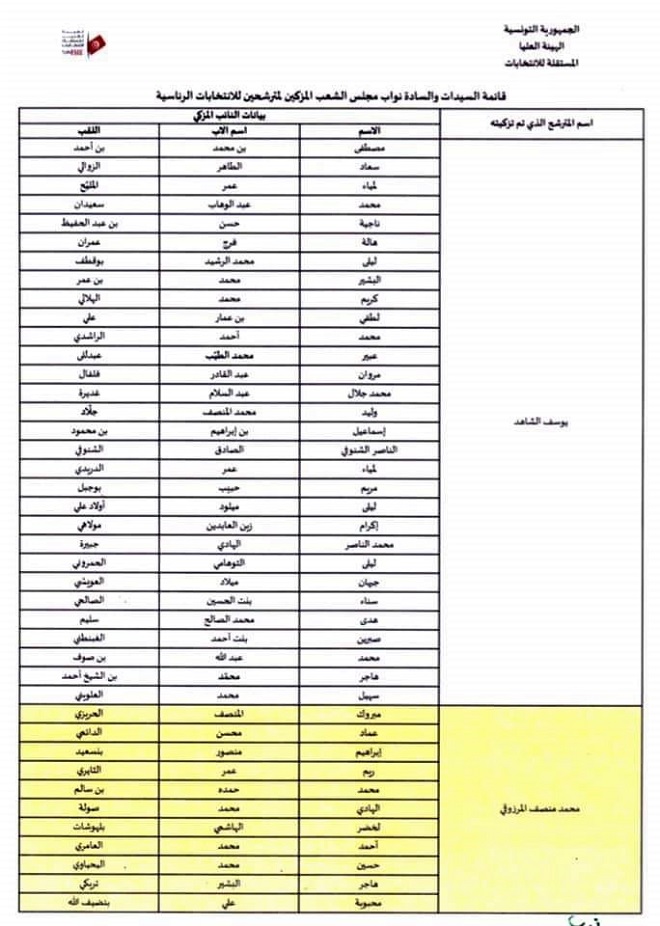 الجمهورية التونسية
الهيئة العليا
المستقلة للانتخابات
قائمة السيدات والسادة نواب مجلس الشعب المزكين للمترشحين للانتخابات الرئاسية
اسم المترشح الذي تم تزكيته
بيانات النائب المزكي
الاسم اسم الاب اللقب
يوسف الشاهد
مصطفى بن محمد بن أحمد
سعاد الطاهر الزوالي
لمياء عمر المليّح
محمد عبد الوهاب سعيدان
ناجية حسن بن عبد الحفيظ
هالة فرج عمران
ليلى محمد الرشيد بوقطف
البشير محمد بن عمر
كريم محمد الهلالي
لطفي بن عمار علي
محمد أحمد الراشدي
عبير محمد الطيّب عبدللي
مروان عبد القادر فلفال
محمد جلال عبد السلام غديرة
وليد محمد المنصف جلّاد
إسماعيل بن إبراهيم بن محمود
الناصر الشنوفي الصادق الشنوفي
لمياء عمر الدريدي
مريم حبيب بوجبل
ليلى ميلود أولاد علي
إكرام زين العابدين مولاهي
محمد الناصر الهادي جبيرة
ليلى التوهامي الحمروني
جيهان ميلاد العويشي
سناء بنت الحسين الصالحي
هدى محمد الصالح سليم
صبرين بنت أحمد القبنطيني
محمد عبد الله بن صوف
هاجر محمّد بن الشيخ أحمد
سهيل محمد العلويني
محمد منصف المرزوقي
مبروك المنصف الحريزي
عماد محسن الدائمي
إبراهيم منصور بنسعيد
ريم عمر الثايري
محمد حمده بن سالم
الهادي محمد صولة
لخضر الهاشمي بلهوشات
أحمد محمد العامري
حسين محمد اليحياوي
هاجر البشير تريكي
محبوبة علي بنضيف الله